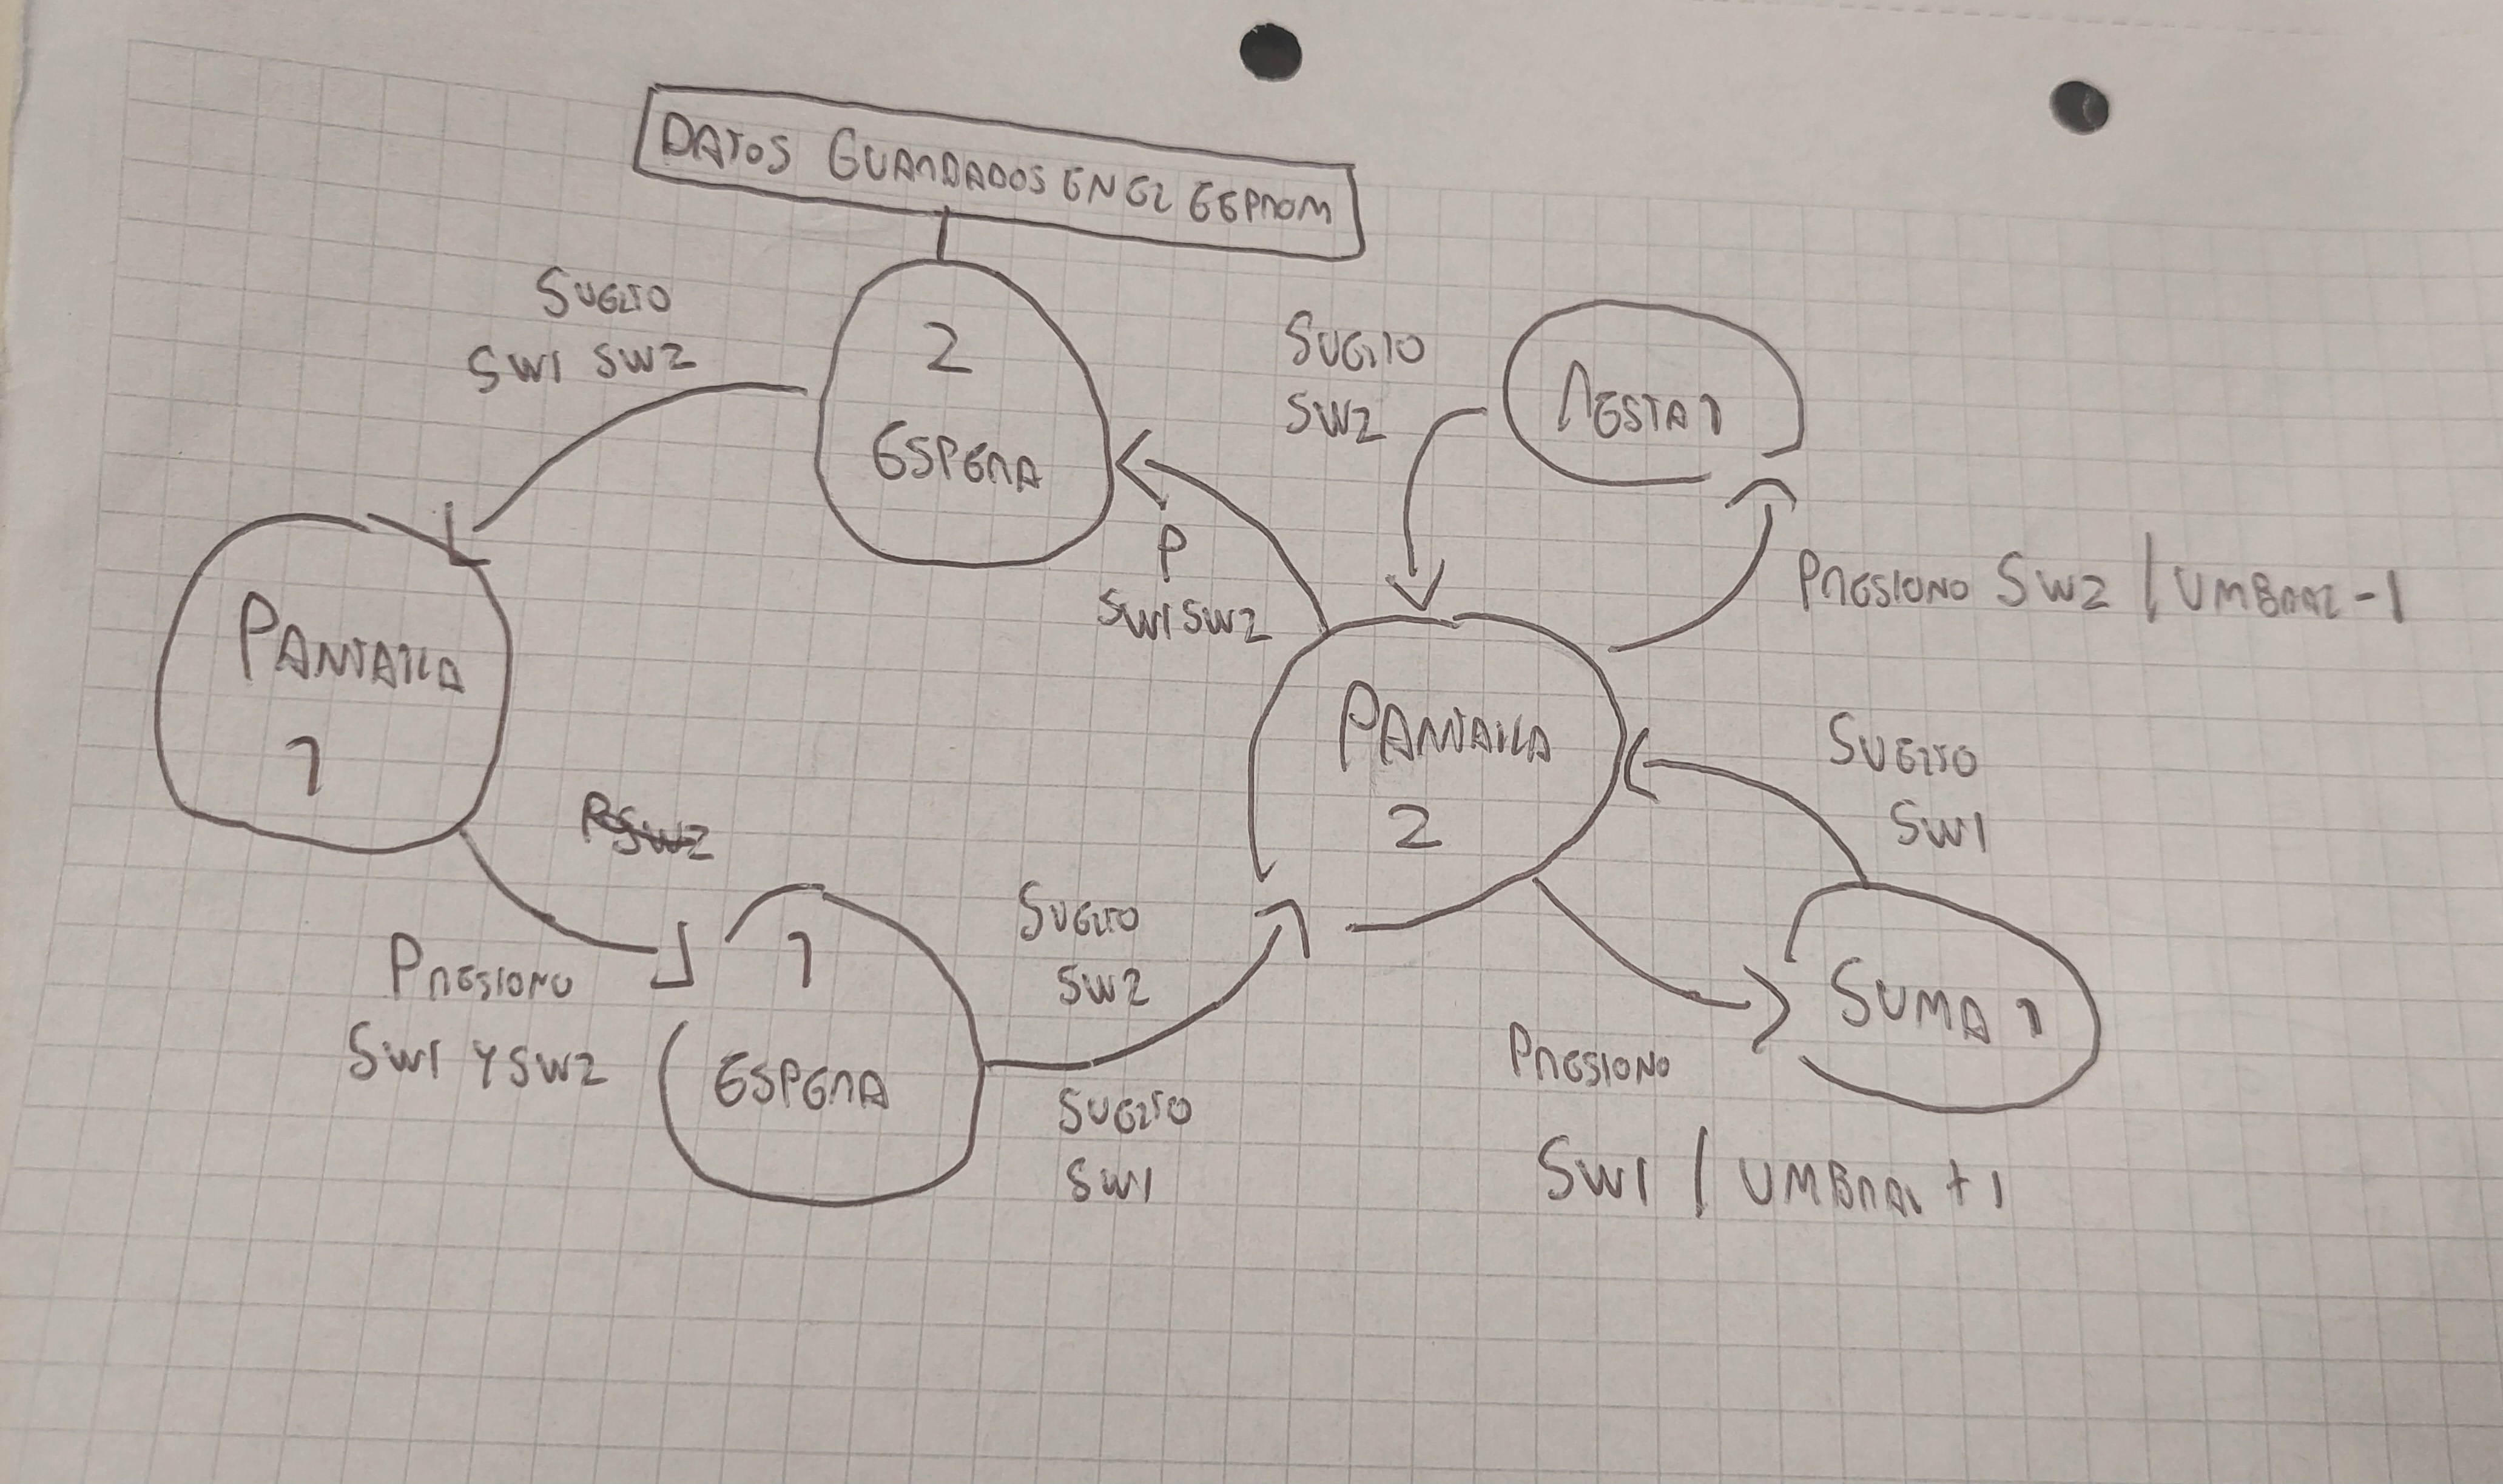 DATOS GUARDADOS EN EL EEPROM
SUELTO
SW1 SW2
2
ESPERA
SUELTO
SW2
RESTA 1
P
SW1 SW2
PRESIONO SW2 / UMBRAL -1
PANTALLA
1
PANTALLA
2
SUELTO
SW1
PRESIONO
SW1 Y SW2
1
ESPERA
SUELTO
SW2
SUELTO
SW1
SUMA 1
PRESIONO
SW1 / UMBRAL +1